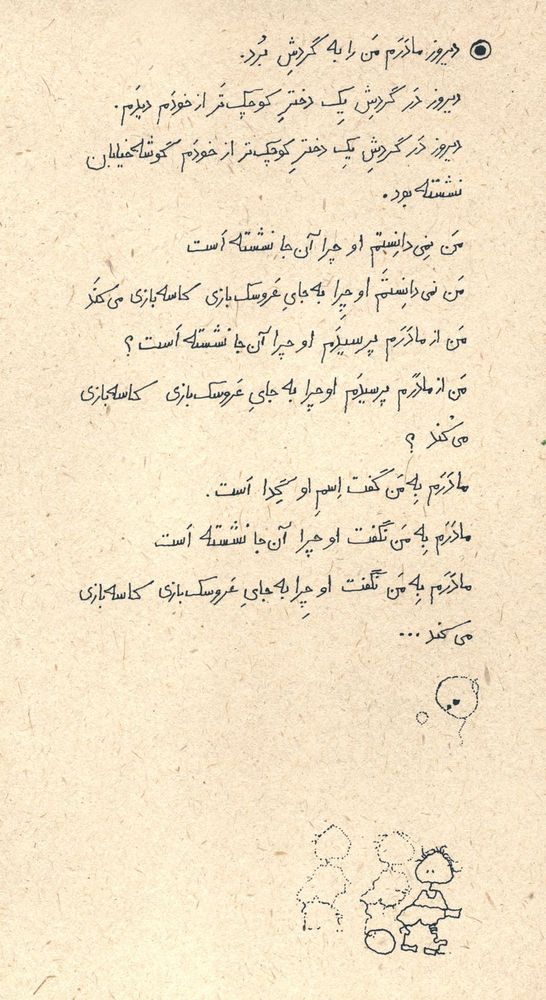 دیروز مادَرَم مَن را به گردِشِ بُرد.
دیروز دَر گردِشِ یِک دخترِ کوچِک‌تَر از خودَم دیدَم.
دیروز دَر گردِشِ یِک دخترِ کوچِک‌تر از خودَم گوشه‌خیابان
نشتنه بود.
مَن نِمی‌دانِستم او چرا آن‌جا نشسته اَست
مَن نمی‌دانِستَم او چِرا به جایِ عَروسک‌بازی کاسه‌بازی می‌کنَد
مَن از مادَرَم پرسیدَم او چرا آن‌جا نشَسته اَست؟
مَن از مادَرَم پرسیدَم او چرا به جایِ عَروسک‌بازی کاسه‌بازی
می‌کُند ؟
مادَرَم بِه مَن گفت اِسمِ او گِدا اَست.
مادَرَم بِه مَن نگفت او چرا آن‌جا نشَسته اَست
مادَرَم بِه مَن نَگفت او چِرا به جایِ عَروسک‌بازی کاسه‌بازی
می‌کند ...